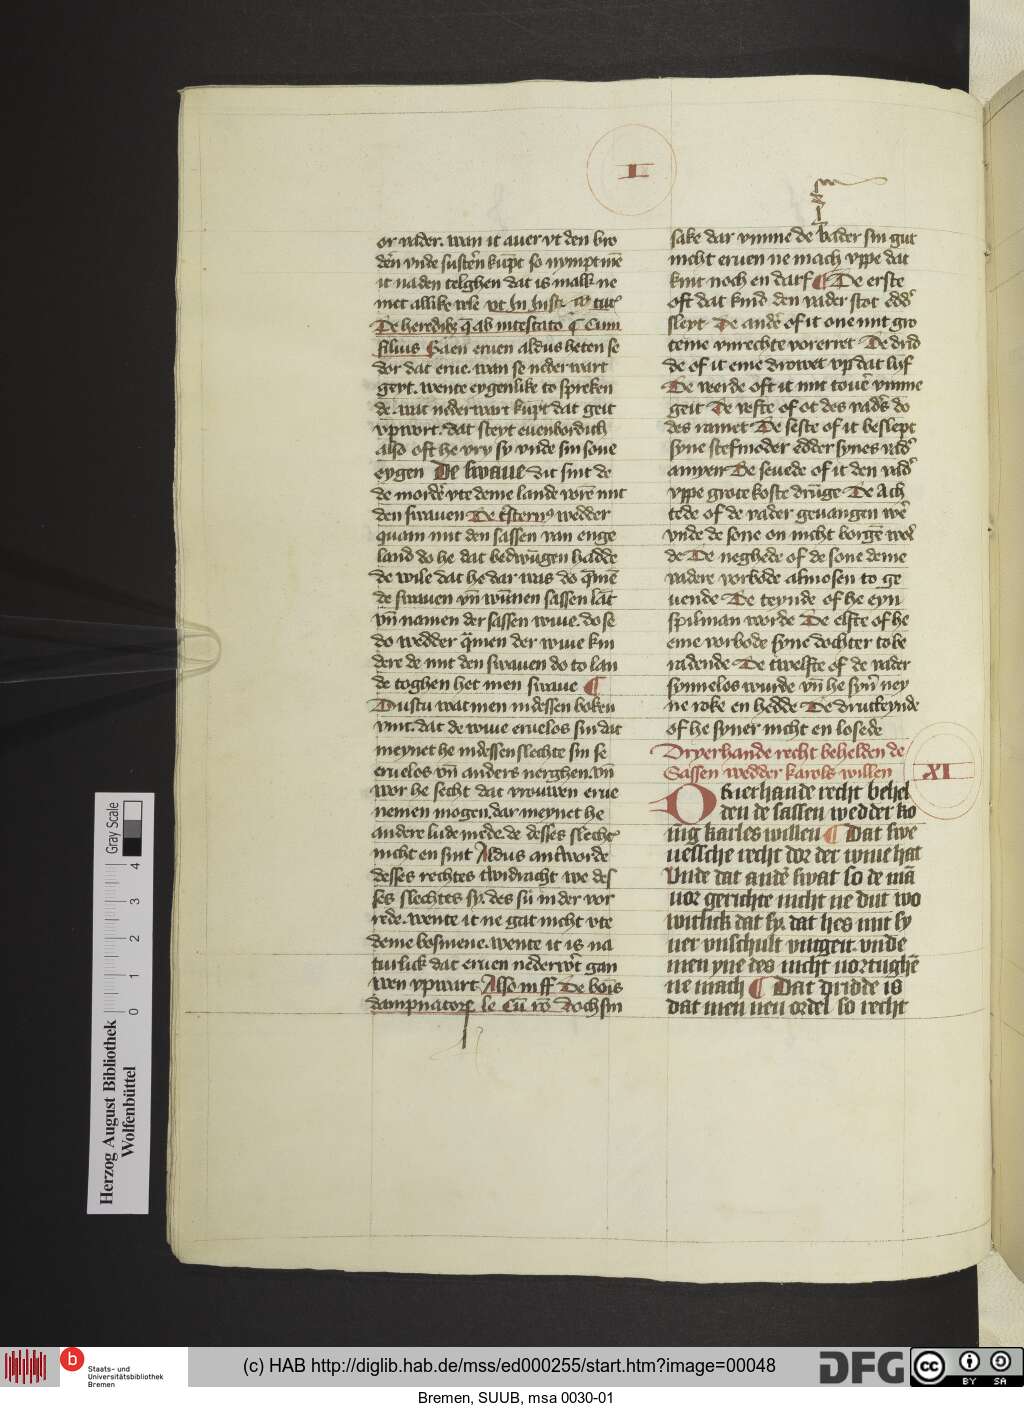 I
or vader. wan it auer vt den bro
dẽn vnde sustẽn kũpt so nymptmẽ
it na den telghen dat is malk ne
met allike vele vt In Inst
De heredib; q̃ ab intestato Cum
filius Saen eruen aldus beten se
dor dat erue. wan se neder wart
geyt. wente eygenlike to spreken
de. wat neder wart kũpt dat geit
vpwort. dat steyt euenbordich
also oft he vry sy vnde sin sone
eygen De swaue dit sint de
de morder vte deme lande wrẽ mit
den swauen De wedder
quam mit den sassen van enge
land do he dat bedwũgen hadde
de wile dat he dar was do q̃mẽ
de swauen vñ wũnen sassen lãt
vñ namen der sassen wiue. do se
do wedder q̃men der wiue kin
dere de mit den swauen do to lan
de toghen het men swaue ¶
Dustu wat men in dessen boken
vint. dat de wiue eruelos sin dat
meynet he in dessen slechte sin se
eruelos vñ anders nerghen. vñ
wor he secht dat vrouwen erue
nemen mogen. dar meynet he
andere lude mede. de desses slecht
nicht en sint Aldus antworde
desses rechtes twidracht we des
ses slechtes sy. des sü in der vor
rede. wente it ne gat nicht vte
deme bosmene. wente it is na
turlick dat eruen nederwt gan
wen vpwart Also in ff De bois
dampnator le Cũ ro Doch sin
sake dar vmme de vader sin gut
nicht eruen ne mach vppe dat
kint noch en darf ¶ De erste
oft dat kind den vader stot edd
sleyt De ande of it one mit gro
teme vnrechte vorerret De drid
de of it eme drowet vp dat lijf
De verde oft it mit touer vmme
geit De vefte of ot des vads do
des ramet De seste of it beslept
syne stefmoder edder synes vad
amyen De seuede of it den vad
vppe grote koste drũge De ach
tede of de vader geuangen wer
vnde de sone on nicht borgẽ wol
de De neghede of de sone deme
vadere vorbode almosen to ge
uende De teynde of he eyn
spilman worde De elfte of he
eme vorbode syne dochter to be
radende De twelfte of de vader
synnelos wurde vñ he syn ney
ne roke en hedde De drutteynde
of he syner nicht en losede
Dryerhande recht behelden de
Sassen wedder karols willen
XI
Drierhande recht behel
den de sassen wedder ko
nig karles willen ¶ Dat swe
uessche recht dor der wiue hat
Vnde dat ande swat so de mã
uor gerichte nicht ne dut wo
witlick dat sy. dat hes mit sy
ner vnschult vntgeit. vnde
men yne des nicht uortughẽ
ne mach ¶ Dat dridde is
dat men nen ordel so recht
Gray Scale
0 1 2 3 4
Herzog August Bibliothek
Wolfenbüttel
b
Staats- und
Universitätsbibliothek
Bremen
(c) HAB http://diglib.hab.de/mss/ed000255/start.htm?image=00048
DFG
cc BY SA
Bremen, SUUB, msa 0030-01